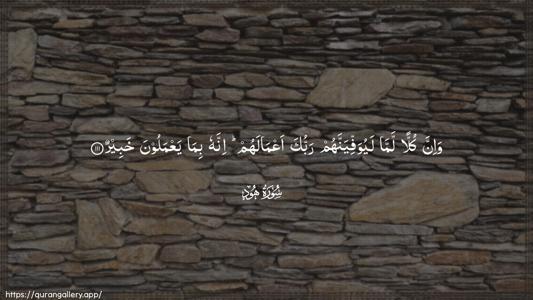 وَاِنَّ كُلًّا لَّمَّا لَيُوَفِّيَنَّهُمْ رَبُّكَ اَعْمَالَهُمْ ؕ اِنَّهٗ بِمَا يَعْمَلُوْنَ خَبِيْرٌ ١١١
سُوْرَةُ هُوْدٍ
https://qurangallery.app/